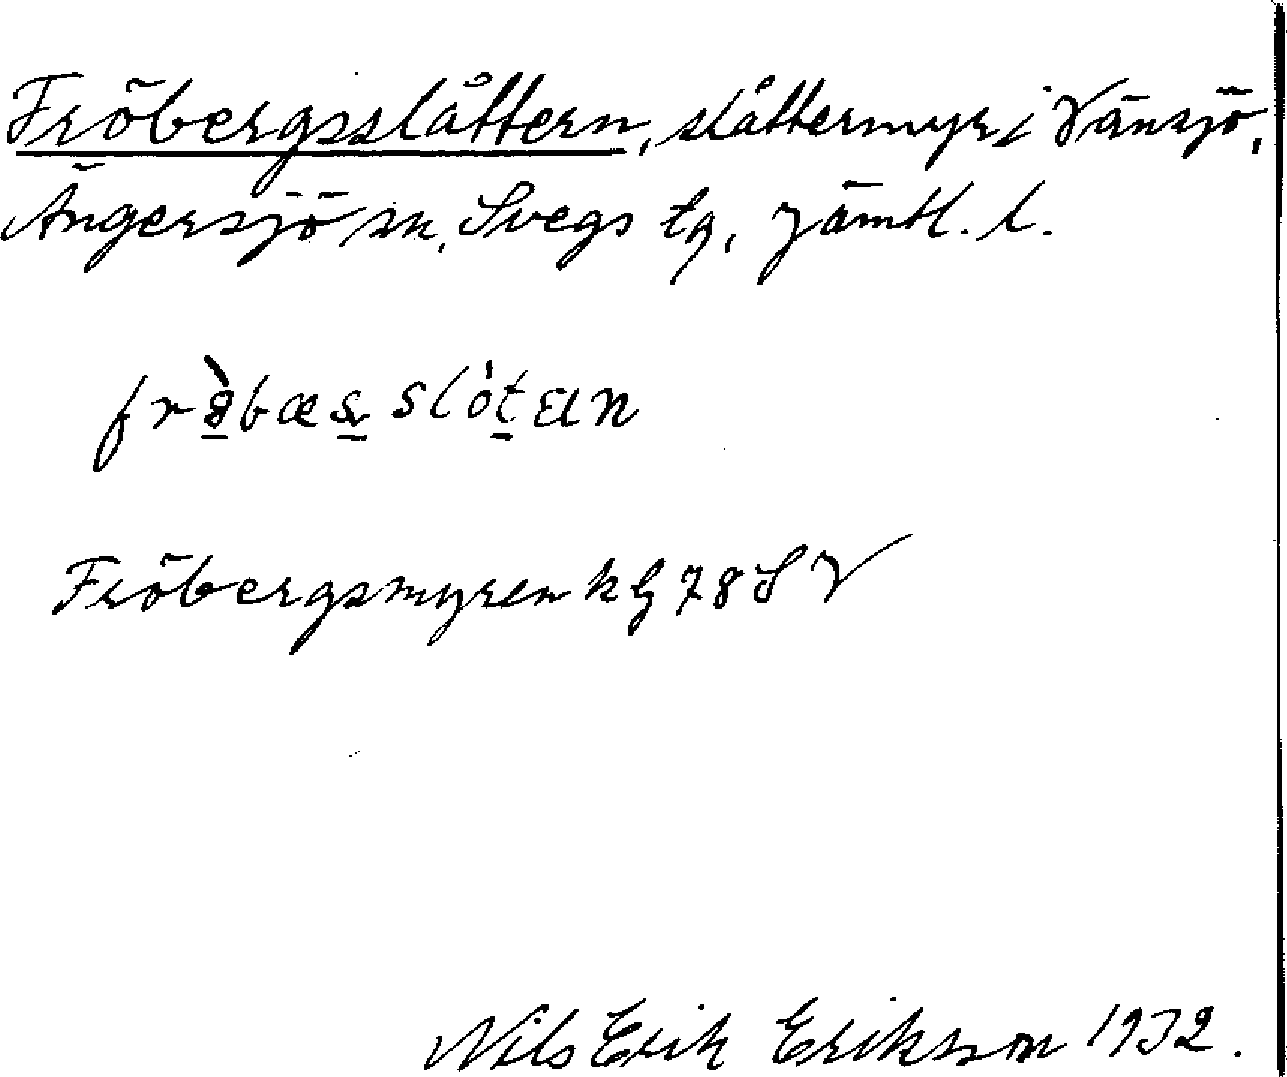 Fröbergsslåttern, slåttermyr i Vänsjö,
Ängersjö sn, Svegs tg, Jämtl. l.
Fröbergsmyren kg 78 SV
Nils Erik Eriksson 1932.